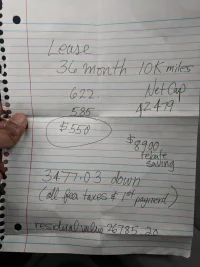 Lease
36 month 10K miles
622 Net Cap
585 42479
$550
$8900
rebate
saving
3477.03 down
(all fees taxes & 1st payment)
residual value 26785.20